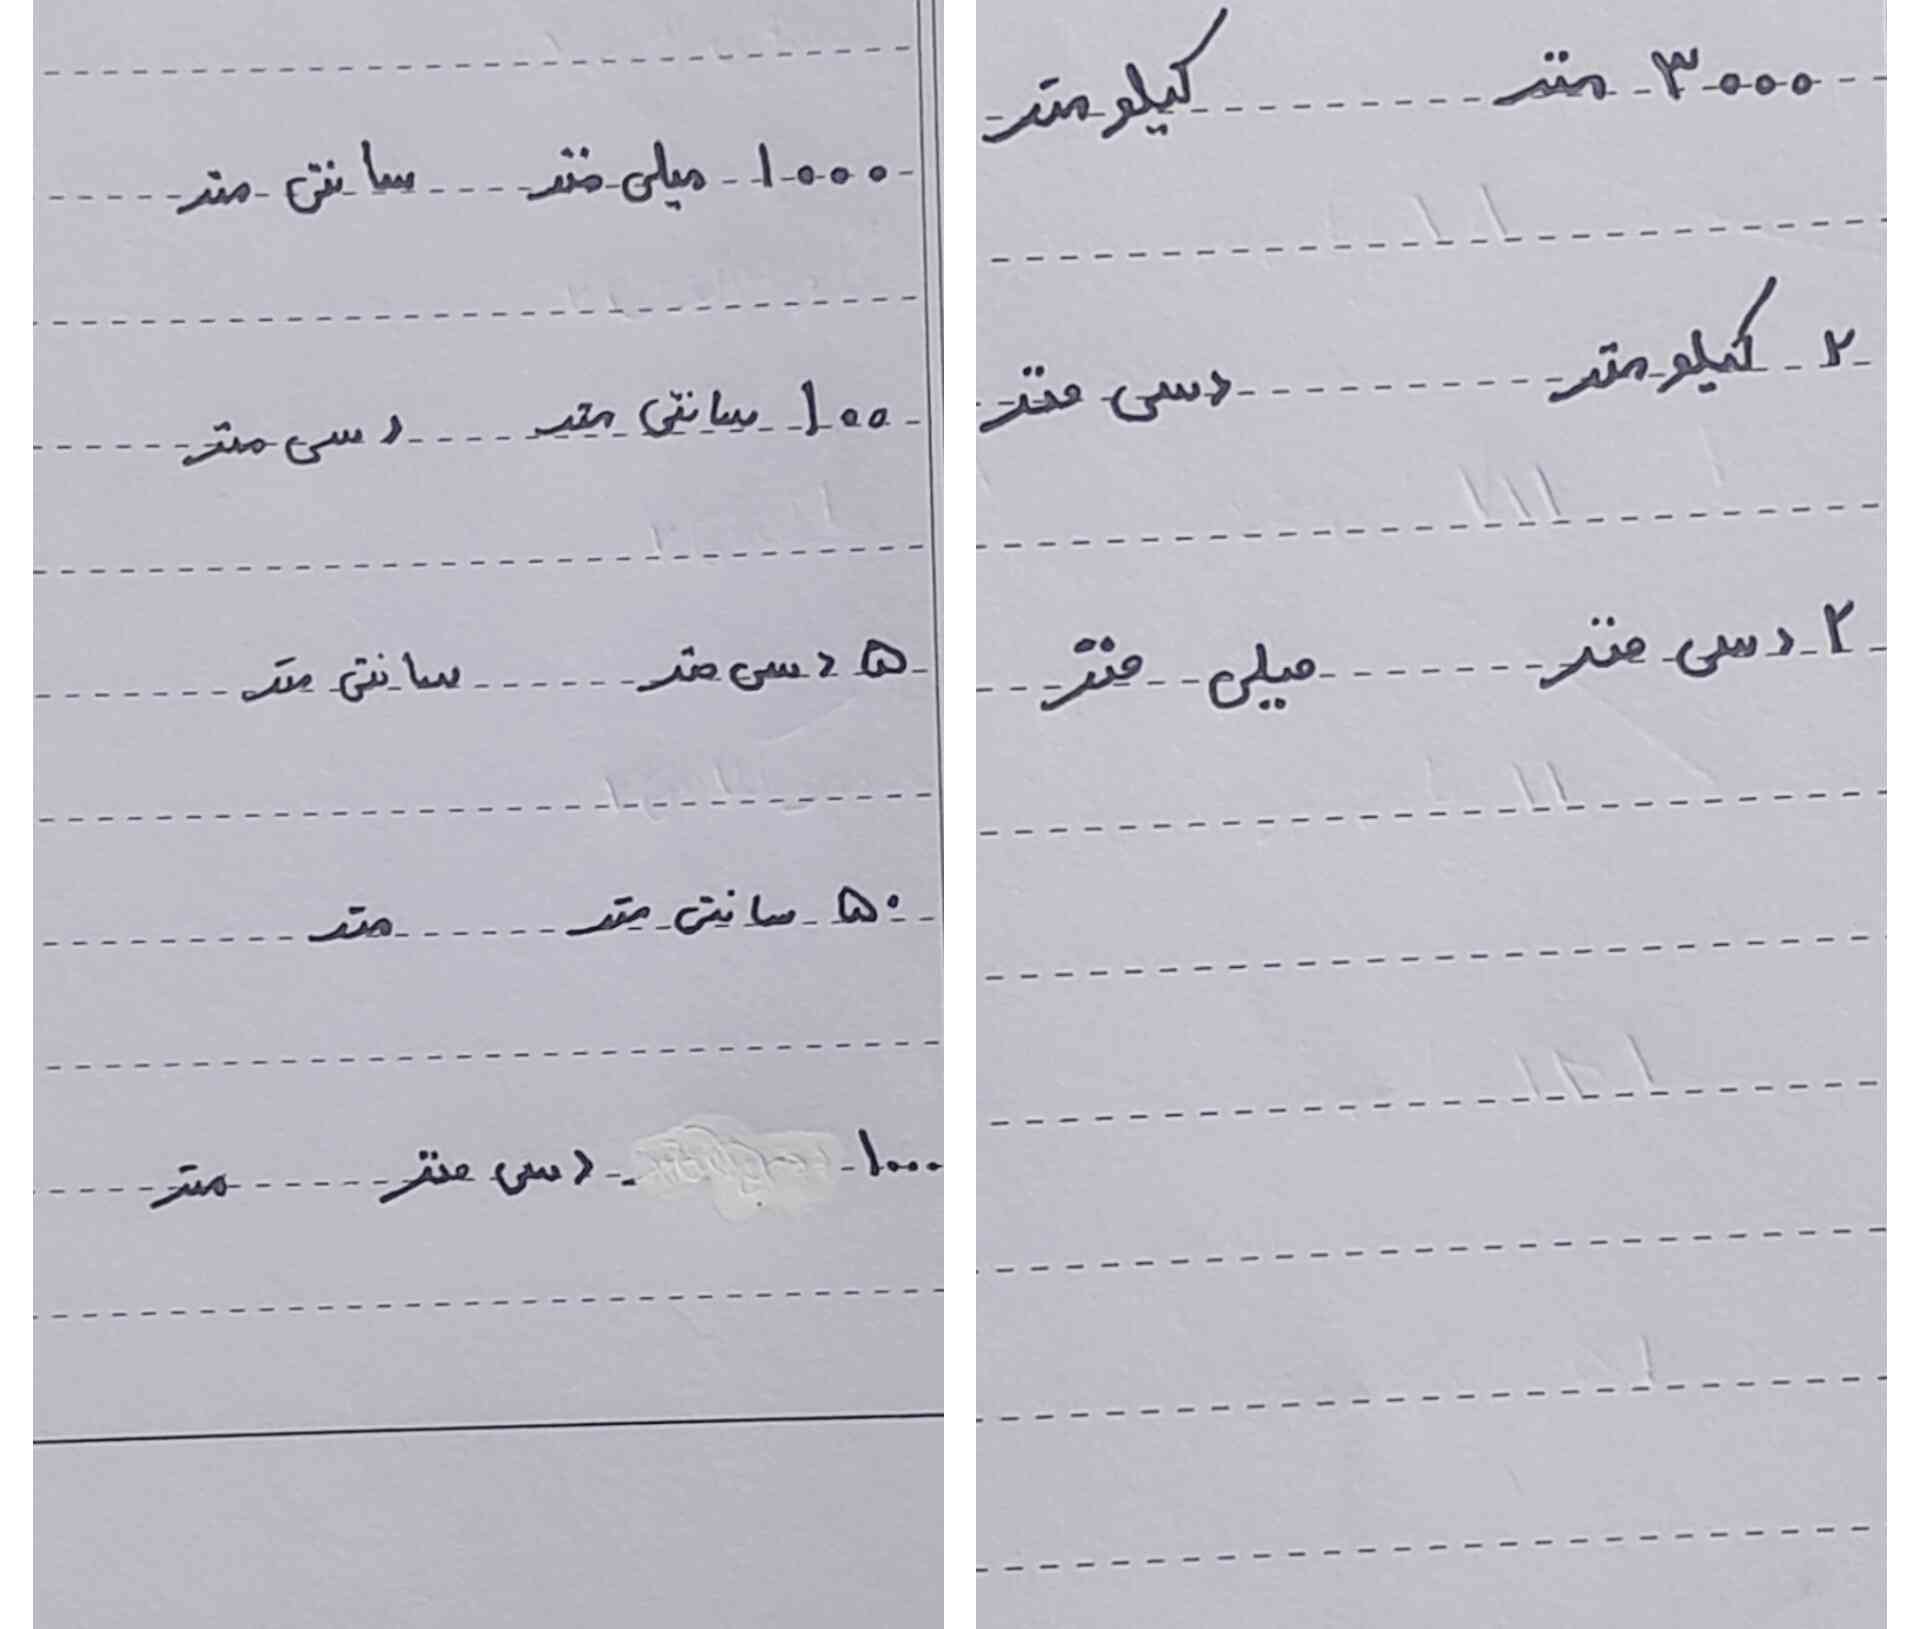 ۳۰۰۰ متر کیلو متر
۲ کیلو متر دسی متر
۲ دسی متر میلی متر
۱۰۰۰ میلی متر سانتی متر
۱۰۰ سانتی متر دسی متر
۵ دسی متر سانتی متر
۵۰ سانتی متر متر
۱۰۰۰ دسی متر متر